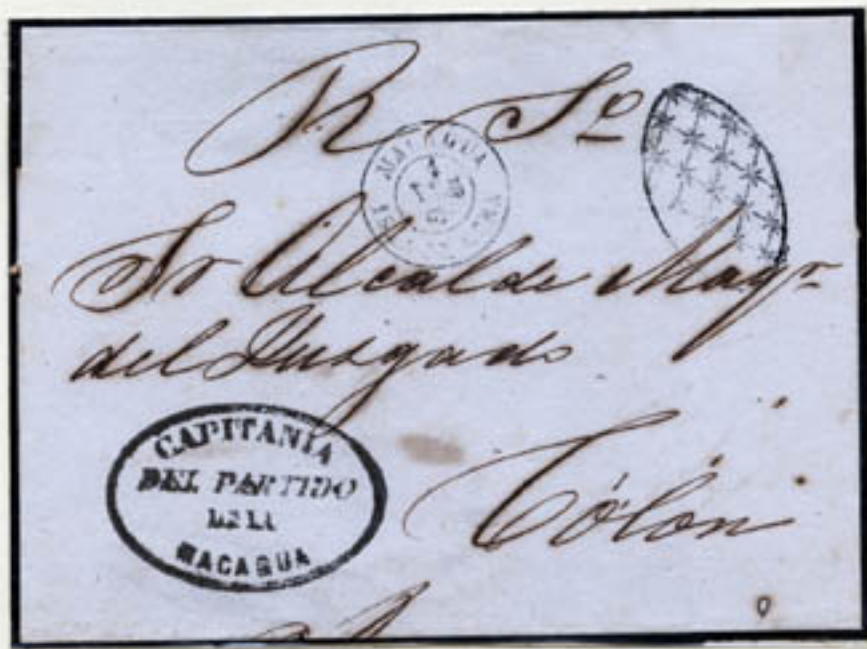 R So
MACAGUA
Sr Alcalde Mayr
del Jusgado
Cólón
CAPITANIA
DEL PARTIDO
DE LA
MACAGUA